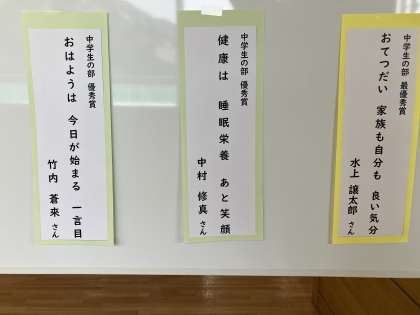 中学生の部 最優秀賞
おてつだい 家族も自分も 良い気分
水上 譲太郎さん
中学生の部 優秀賞
健康は 睡眠栄養 あと笑顔
中村 修真さん
中学生の部 優秀賞
おはようは 今日が始まる 一言目
竹内 蒼来さん